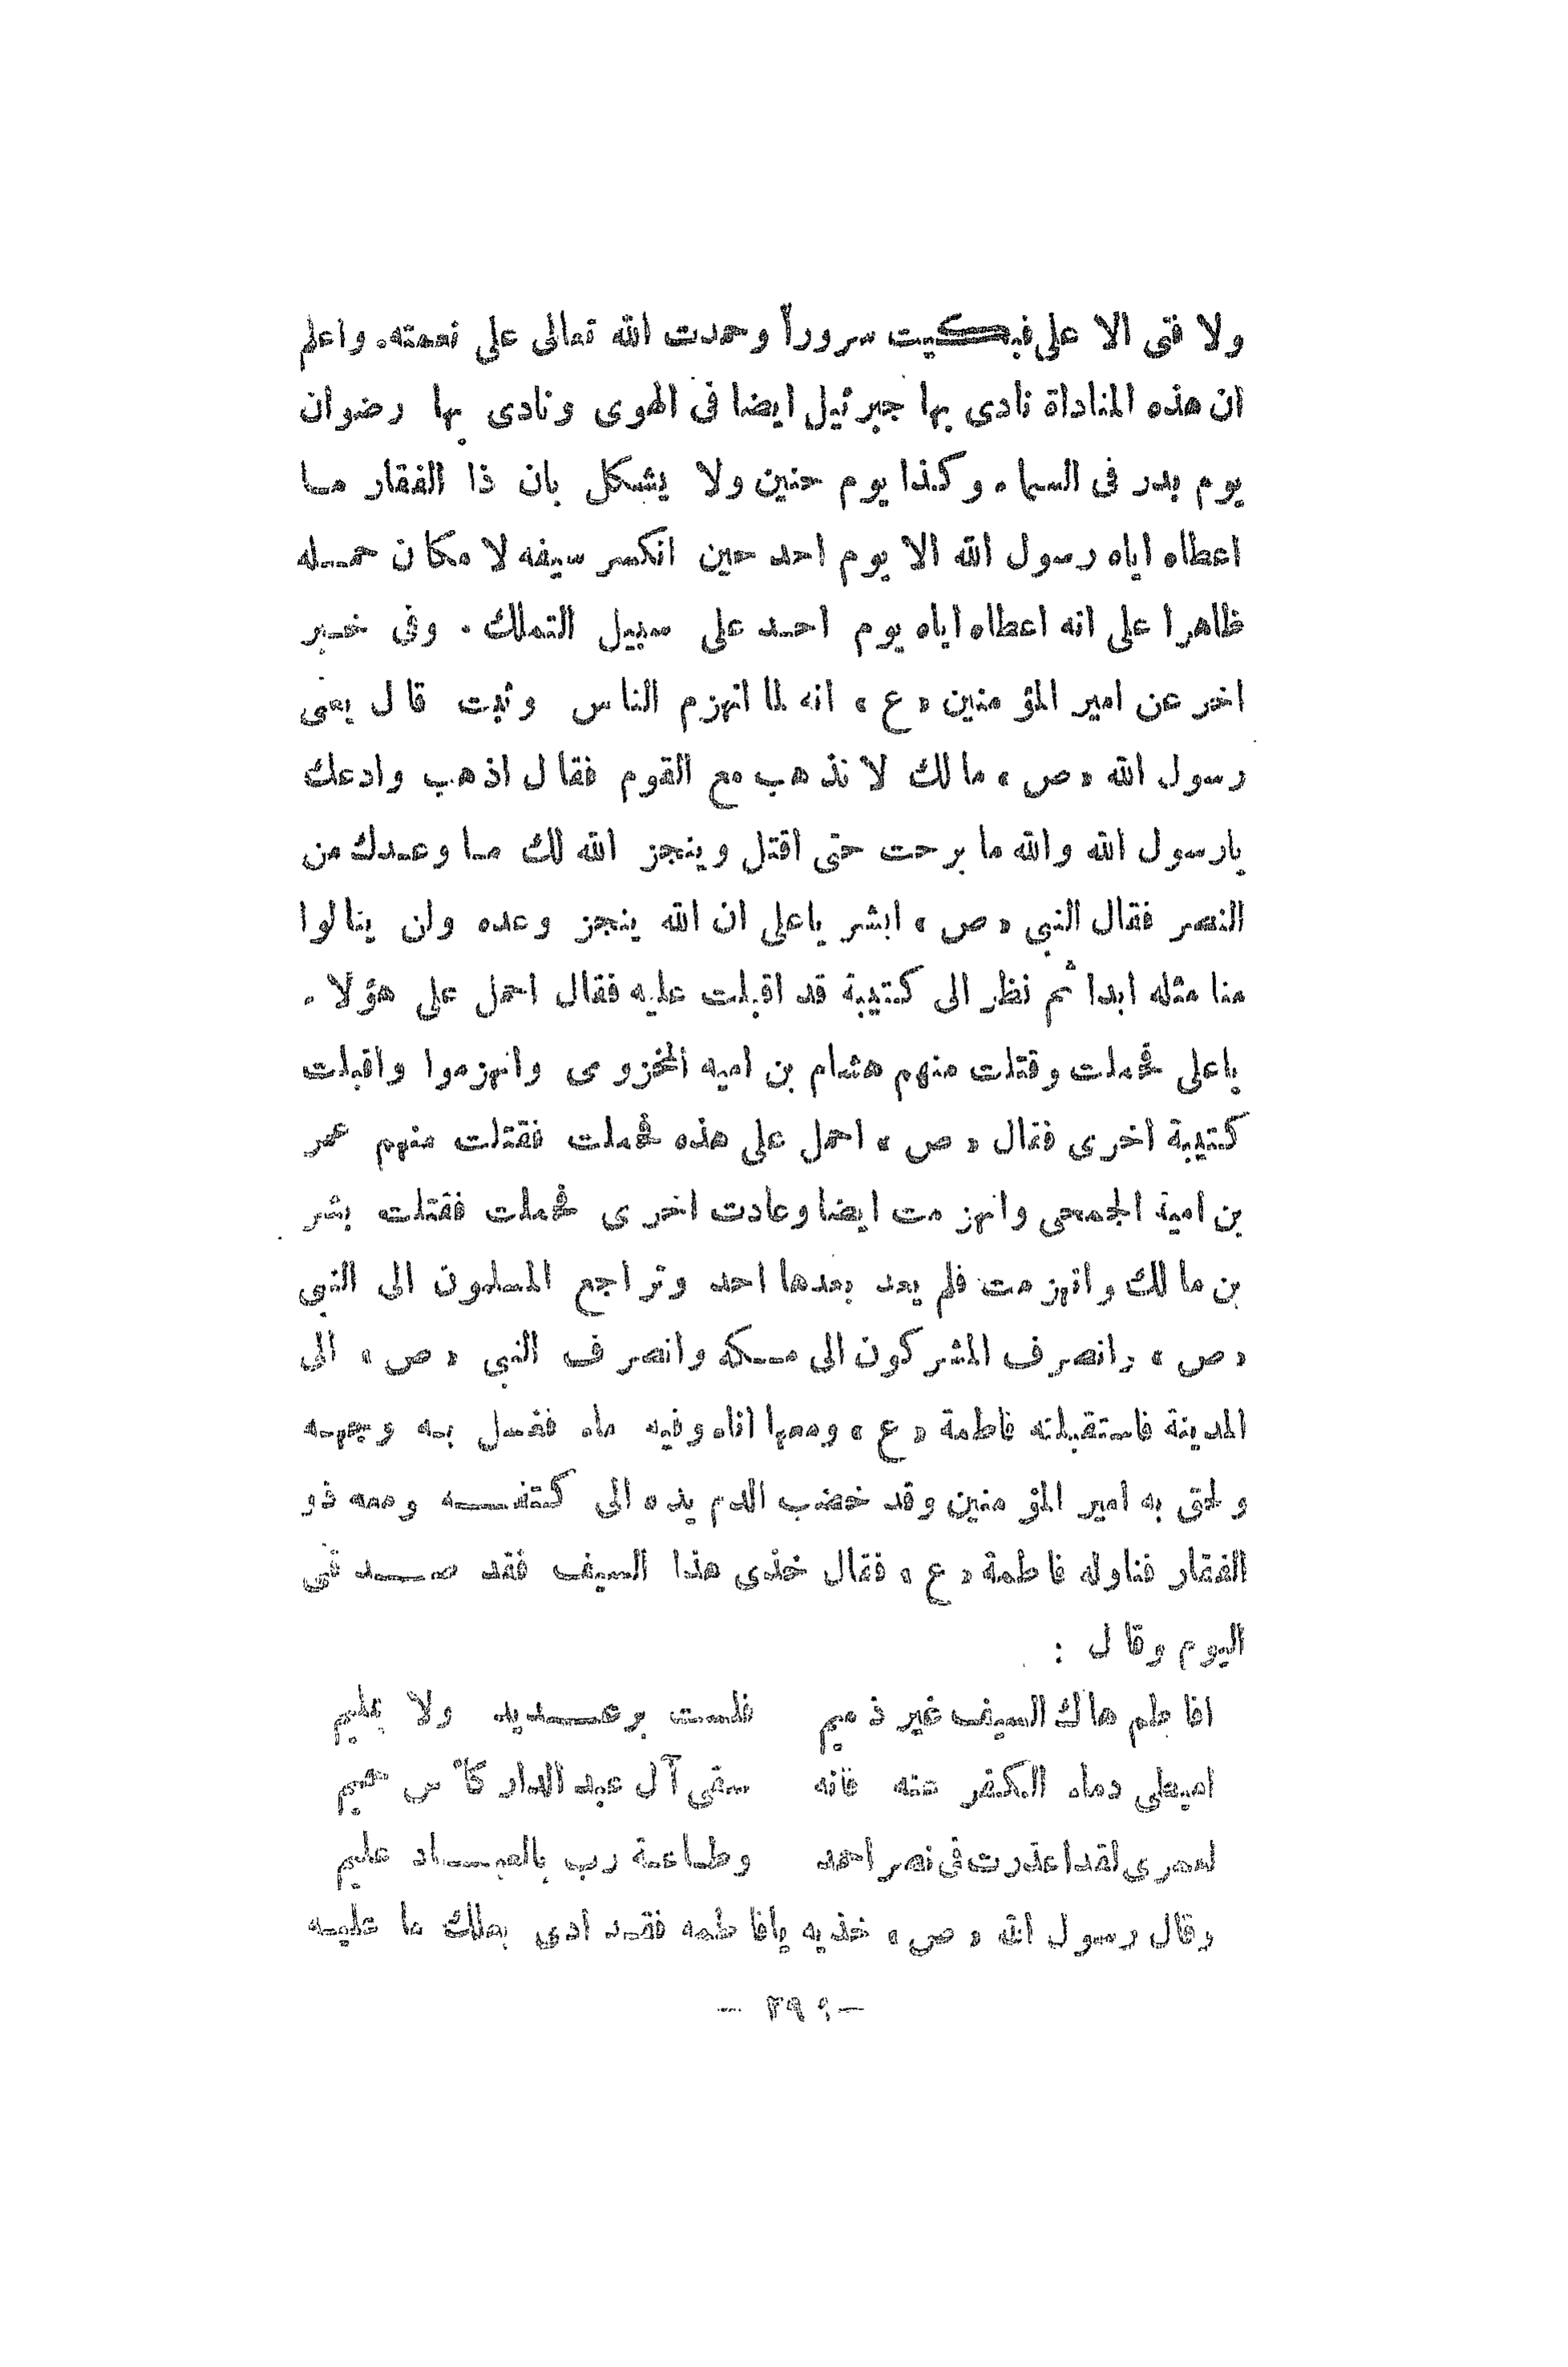 ولا فتى الا على فبكيت سروراً وحمدت الله تعالى على نعمته. واعلم
ان هذه المناداة نادى بها جبرئيل ايضا فى الهوى ونادى بها رضوان
يوم بدر فى السماء وكذا يوم حنين ولا يشكل بان ذا الفقار ما
اعطاه اياه رسول الله الا يوم احد حين انكسر سيفه لا مكان حمله
ظاهرا على انه اعطاه اياه يوم احد على سبيل التملك . وفى خبر
اخر عن امير المؤمنين «ع» انه لما انهزم الناس وثبت قال يعى
رسول الله «ص» مالك لا تذهب مع القوم فقال اذهب وادعك
يارسول الله والله ما برحت حتى اقتل وينجز الله لك ما وعدك من
النصر فقال النبى «ص» ابشر ياعلى ان الله ينجز وعده ولن ينالوا
منا مثله ابدا ثم نظر الى كتيبة قد اقبلت عليه فقال احمل على هؤلاء
ياعلى فحملت وقتلت منهم هشام بن اميه المخزومى وانهزموا واقبلت
كتيبة اخرى فقال «ص» احمل على هذه فحملت فقتلت منهم عمر
بن امية الجمحى وانهزمت ايضا وعادت اخرى فحملت فقتلت بشر
بن مالك وانهزمت فلم يعد بعدها احد وتراجع المسلمون الى النبي
«ص» وانصرف المشركون الى مكه وانصرف النبي «ص» الى
المدينة فاستقبلته فاطمة «ع» ومعها اناء وفيه ماء فغسل به وجهه
ولحق به امير المؤمنين وقد خضب الدم يده الى كتفه ومعه ذو
الفقار فناوله فاطمة «ع» فقال خذى هذا السيف فقد صدقني
اليوم وقال :
افاطم هاك السيف غير ذميم فلست برعديد ولا بمليم
اميطى دماء الكفر عنه فانه سقى آل عبد الدار كأس حميم
لعمرى لقد اعذرت فى نصر احمد وطاعة رب بالعباد عليم
وقال رسول الله «ص» خذيه يافاطمه فقد ادى بعلك ما عليه